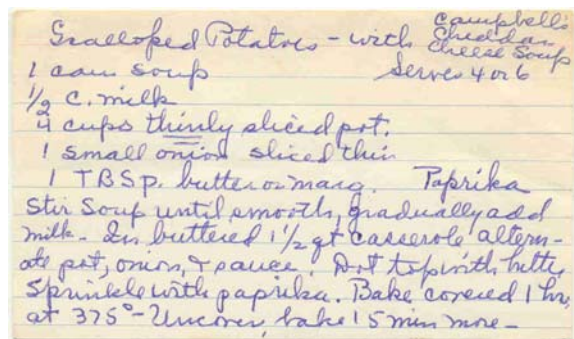 Scalloped Potatoes - with Campbell's Cheddar Cheese Soup
1 can soup Serves 4 or 6
1/2 c. milk
4 cups thinly sliced pot.
1 small onion sliced thin
1 TBSP. butter or marg. Paprika
Stir Soup until smooth, gradually add
milk - In buttered 1 1/2 qt casserole altern-
ate pot, onion, & sauce. Dot top with butter
Sprinkle with paprika. Bake covered 1 hr,
at 375° - Uncover, bake 15 min more -